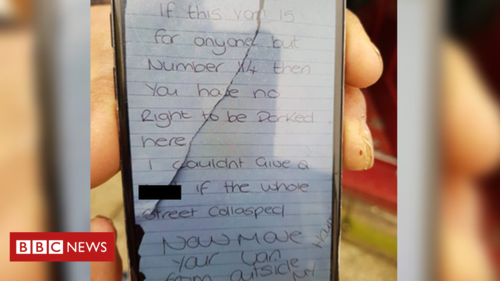 If this van is
for anyone but
Number 14 then
You have no
Right to be Parked
here
I couldnt Give a
if the whole
Street Collosped
Now Move
Your Van
from outside
BBC NEWS